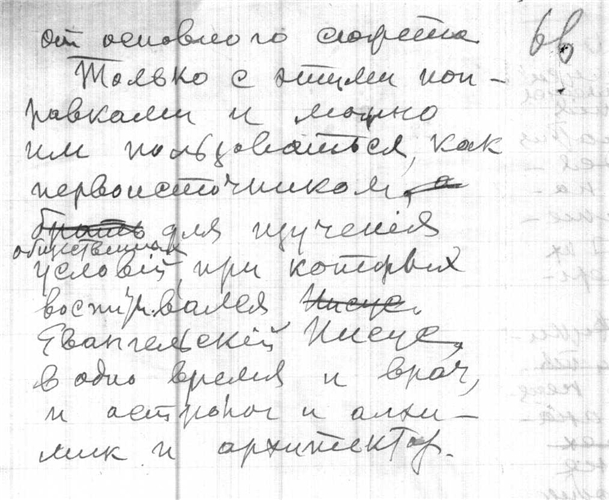 от основного сюжета 66
Только с этими поп-
равками и можно
им пользоваться, как
первоисточником, а
брать для изученія
общественных
условій, при которых
воспитывался Иисус.
Евангельскій Иисус,
в одно время и врач,
и астролог и алхи-
мик и архитектор.